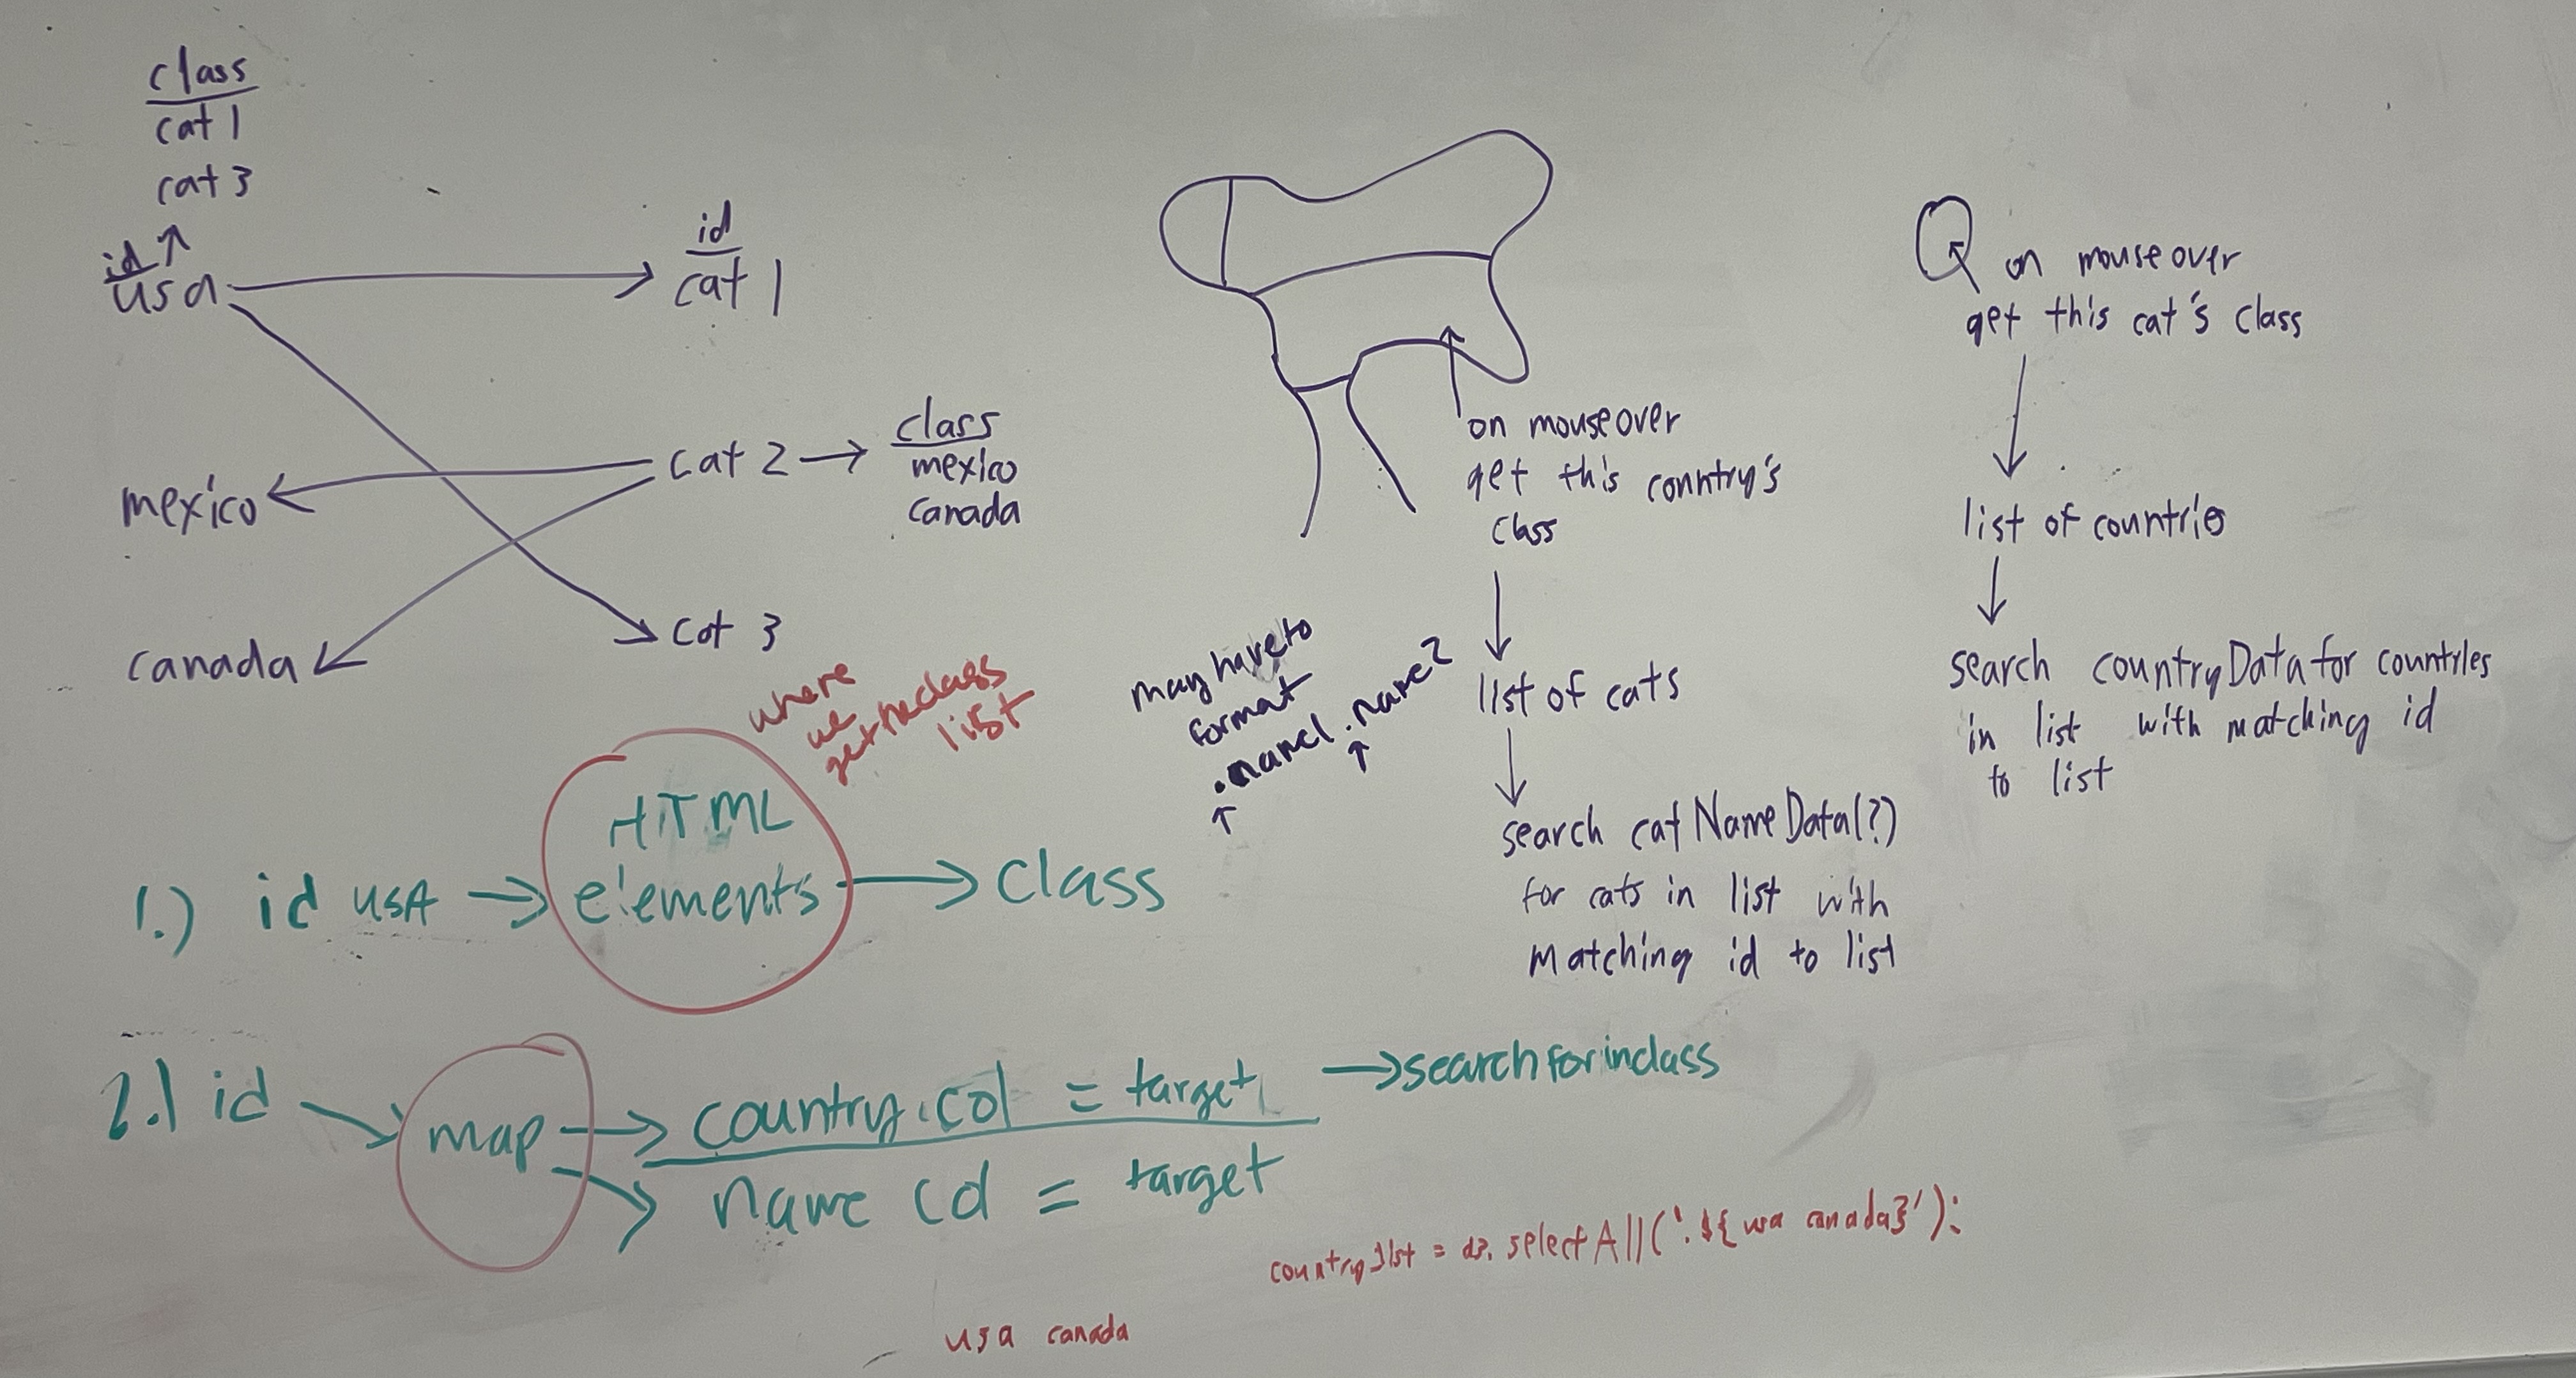 class
cat 1
cat 3
id
usa
id
cat 1
mexico
cat 2
class
mexico
canada
canada
cat 3
on mouseover
get this country's
class
list of cats
search catNameData(?)
for cats in list with
matching id to list
on mouseover
get this cat's class
list of countries
search countryData for countries
in list with matching id
to list
may have to
format
.name1 .name2
where
we
get the class
list
1.) id usA
HTML
elements
class
2.) id
map
country.col = target
search for in class
name cd = target
country list = d3. selectAll('.${usa canada}');
usa canada